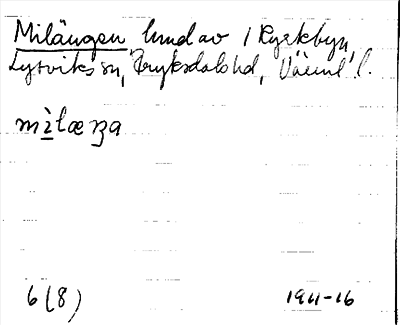 Milängen hmd av 1 Kyrkbyn,
Lysviks sn, Fryksdals hd, Värml l.
mìlæŋa
6 (8) 1911-16